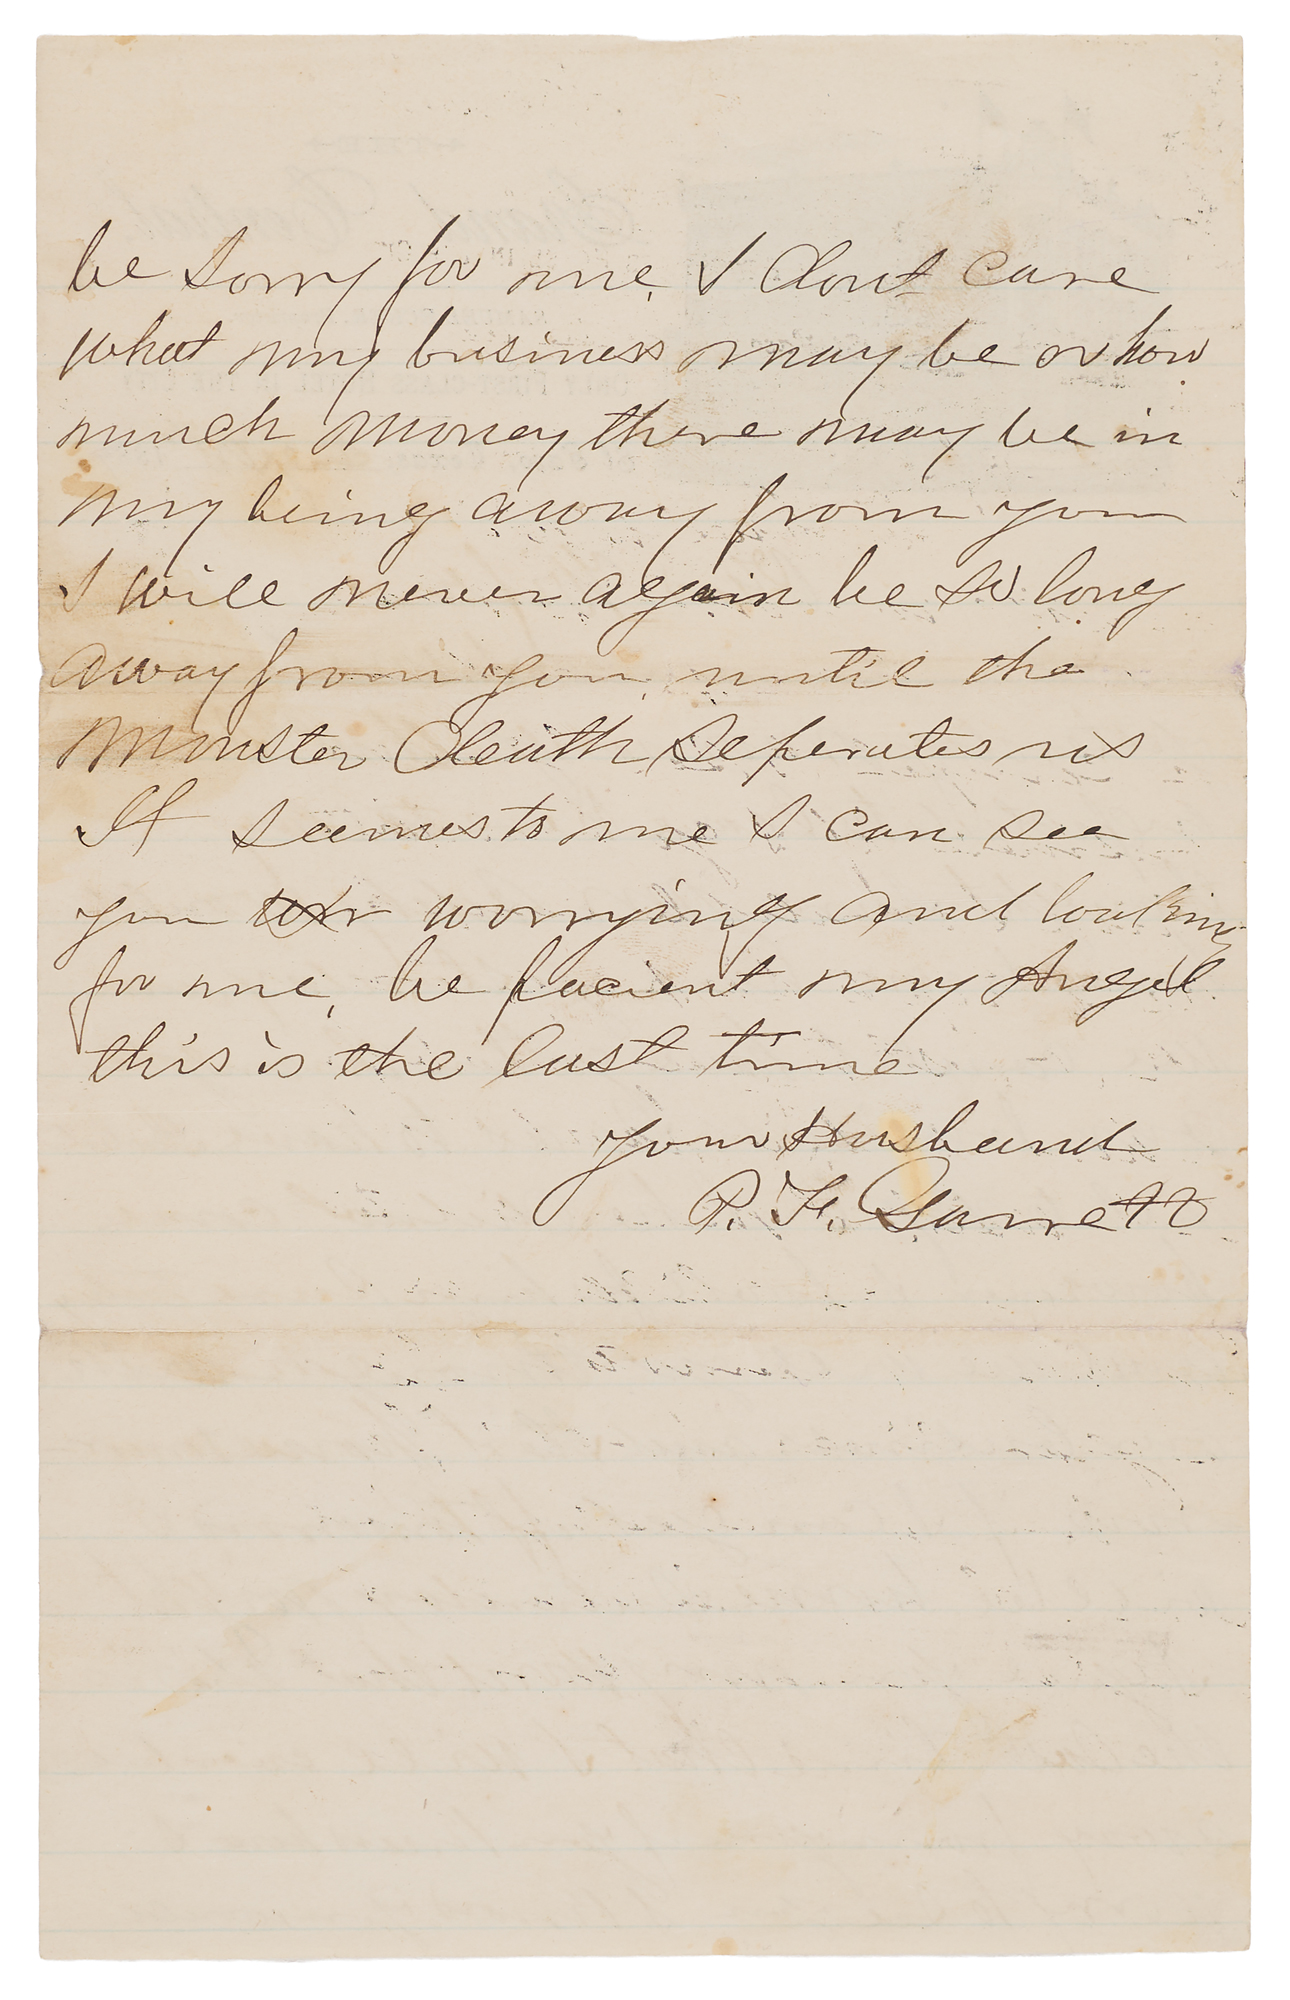 be sorry for me, I dont care
what my business may be or how
much money there may be in
my being away from you
I will never again be so long
away from you, until the
Monster Death seperates us
It seemes to me I can see
you worrying and looking
for me, be pacient my Angel
this is the last time
your Husband
P. F. Garrett